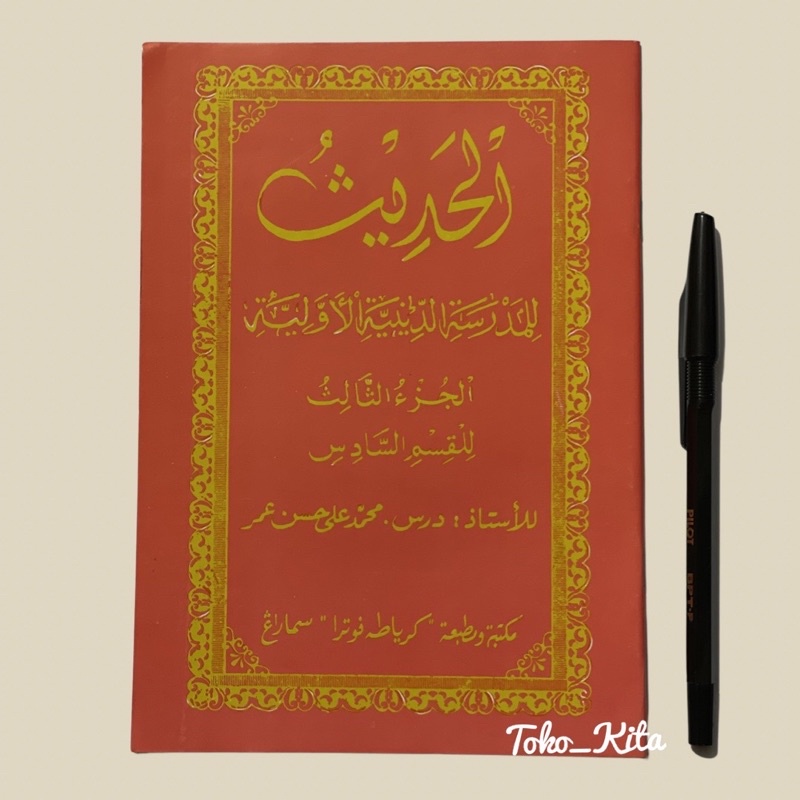 اَلْحَدِيْثُ
لِلْمَدْرَسَةِ الدِّيْنِيَّةِ الْأَوَّلِيَّةِ
اَلْجُزْءُ الثَّالِثُ
لِلْقِسْمِ السَّادِسِ
للأستاذ : درس. محمد على حسن عمر
مكتبة ومطبعة "كرياطه فوترا" سماراڠ
PILOT BPT-F
Toko_Kita